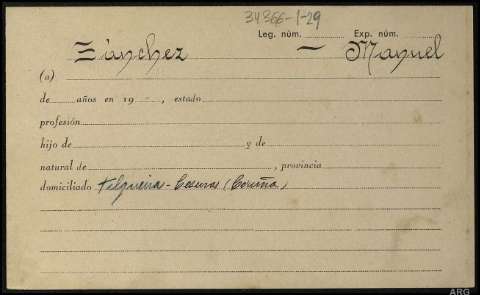 34366-1-29
Leg. núm. Exp. núm.
Sánchez — Manuel
(a)
de años en 19 - , estado
profesión
hijo de y de
natural de , provincia
domiciliado Filgueira - Cesuras (Coruña)
ARG